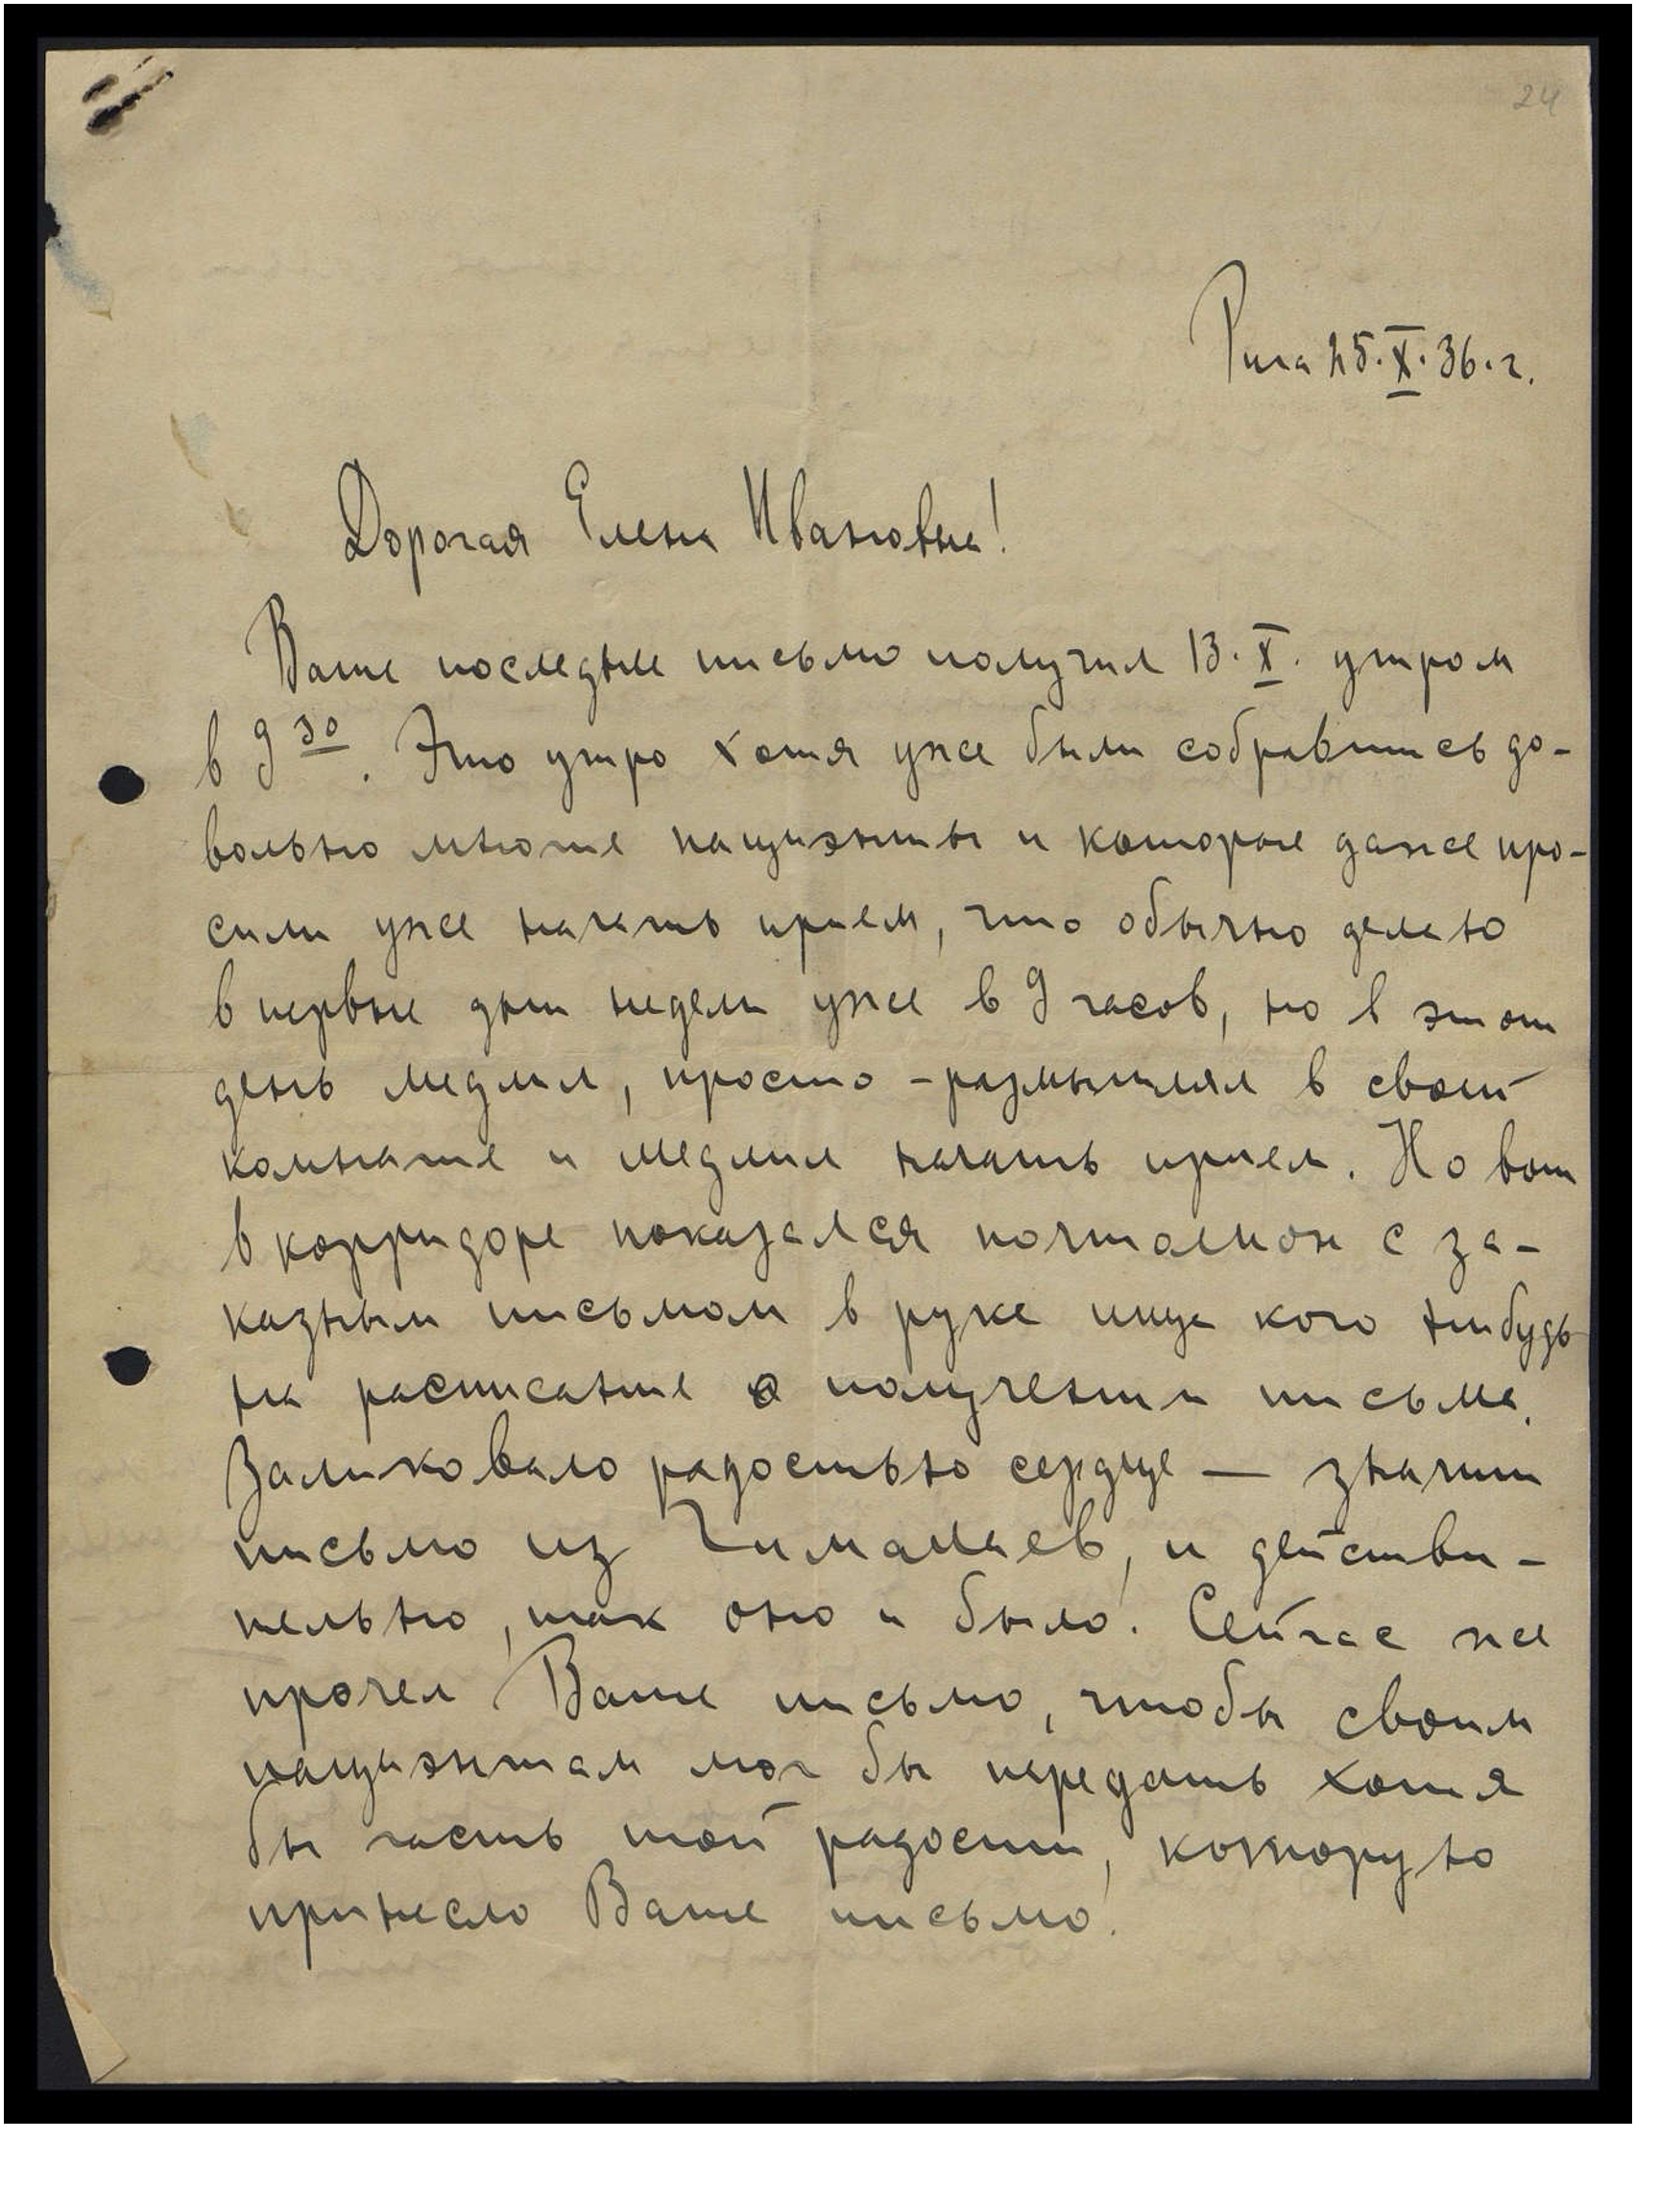 24
Рига 25.X.36.г.
Дорогая Елена Ивановна!
Ваше последнее письмо получил 13.X. утром
в 9 30. Это утро хотя уже были собравшись до-
вольно многие пациэнты и которые даже про-
сили уже начать прием, что обычно делаю
в первые дни недели уже в 9 часов, но в этот
день медлил, просто - размышлял в своей
комнате и медлил начать прием. Но вот
в корридоре показался почталион с за-
казным письмом в руке ища кого нибудь
на расписание о получении письма.
Заликовало радостью сердце — значит
письмо из Гималаев, и действи-
тельно, так оно и было! Сейчас же
прочел Ваше письмо, чтобы своим
пациэнтам мог бы передать хотя
бы часть той радости, которую
принесло Ваше письмо!